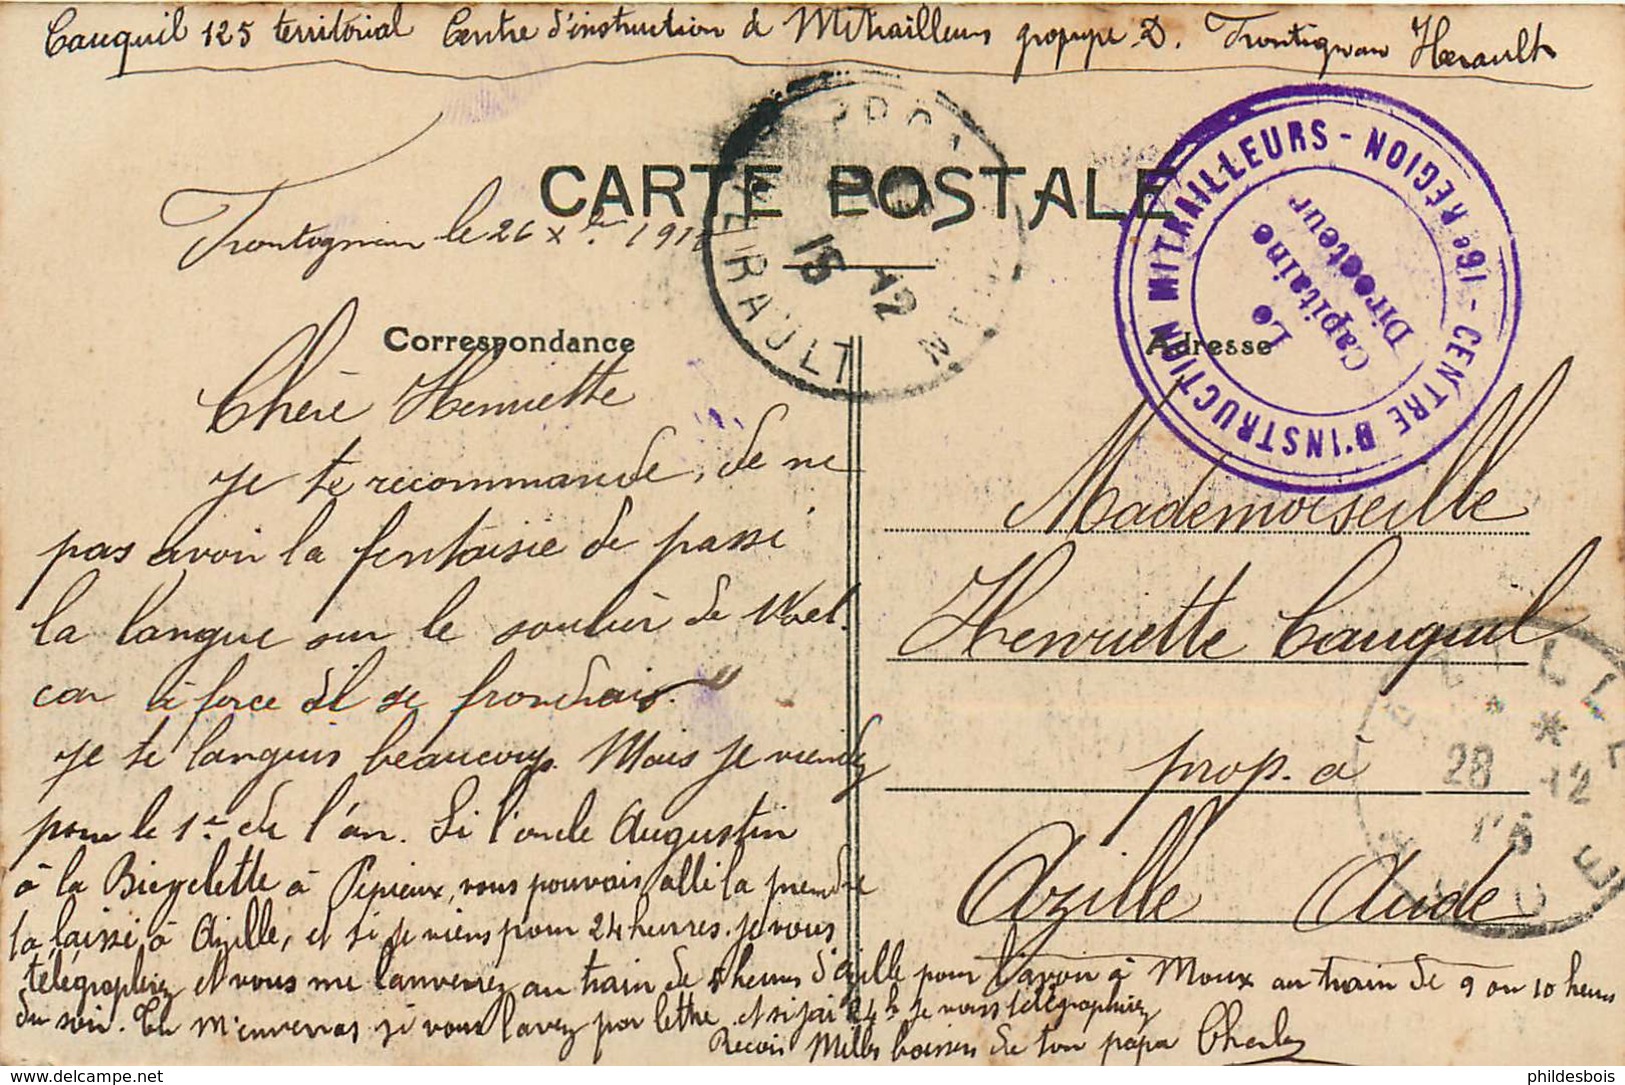 Cauquil 125 territorial Centre d'instruction de Mitrailleurs groupupe D. Frontignan Herault
CARTE POSTALE
MITRAILLEURS - 16e REGION - CENTRE D'INSTRUCTION
Le
Capitaine
Directeur
HERAULT
15 -12
Frontignan le 26 Xbre 191
Correspondance
Adresse
Chère Henriette
je te recommande, de ne
pas avoir la fentaisie de passé
la langue sur le soulier de Noel.
car à force il se frondrais.
je te languis beaucoup. Mais je viendez
pour le 1er de l'an. Si l'oncle Augustin
à la Bicyclette à Pepieux, vous pouvais allé la prendre
la laissé à Azille, et si je viens pour 24 heurres je vous
télégraphiez et vous me l'anverrez au train de 5 heures d'Azille pour l'avoir à Moux au train de 9 ou 10 heures
du soir. Tu m'enverras si vous l'avez par lettre et si j'ai 24 h je vous télégraphiez
Recois Milles baisers de ton papa Charles
Mademoiselle
Henriette Cauquil
prop. à
Azille Aude
AZILLE
28 -12
15
AUDE
phildesbois